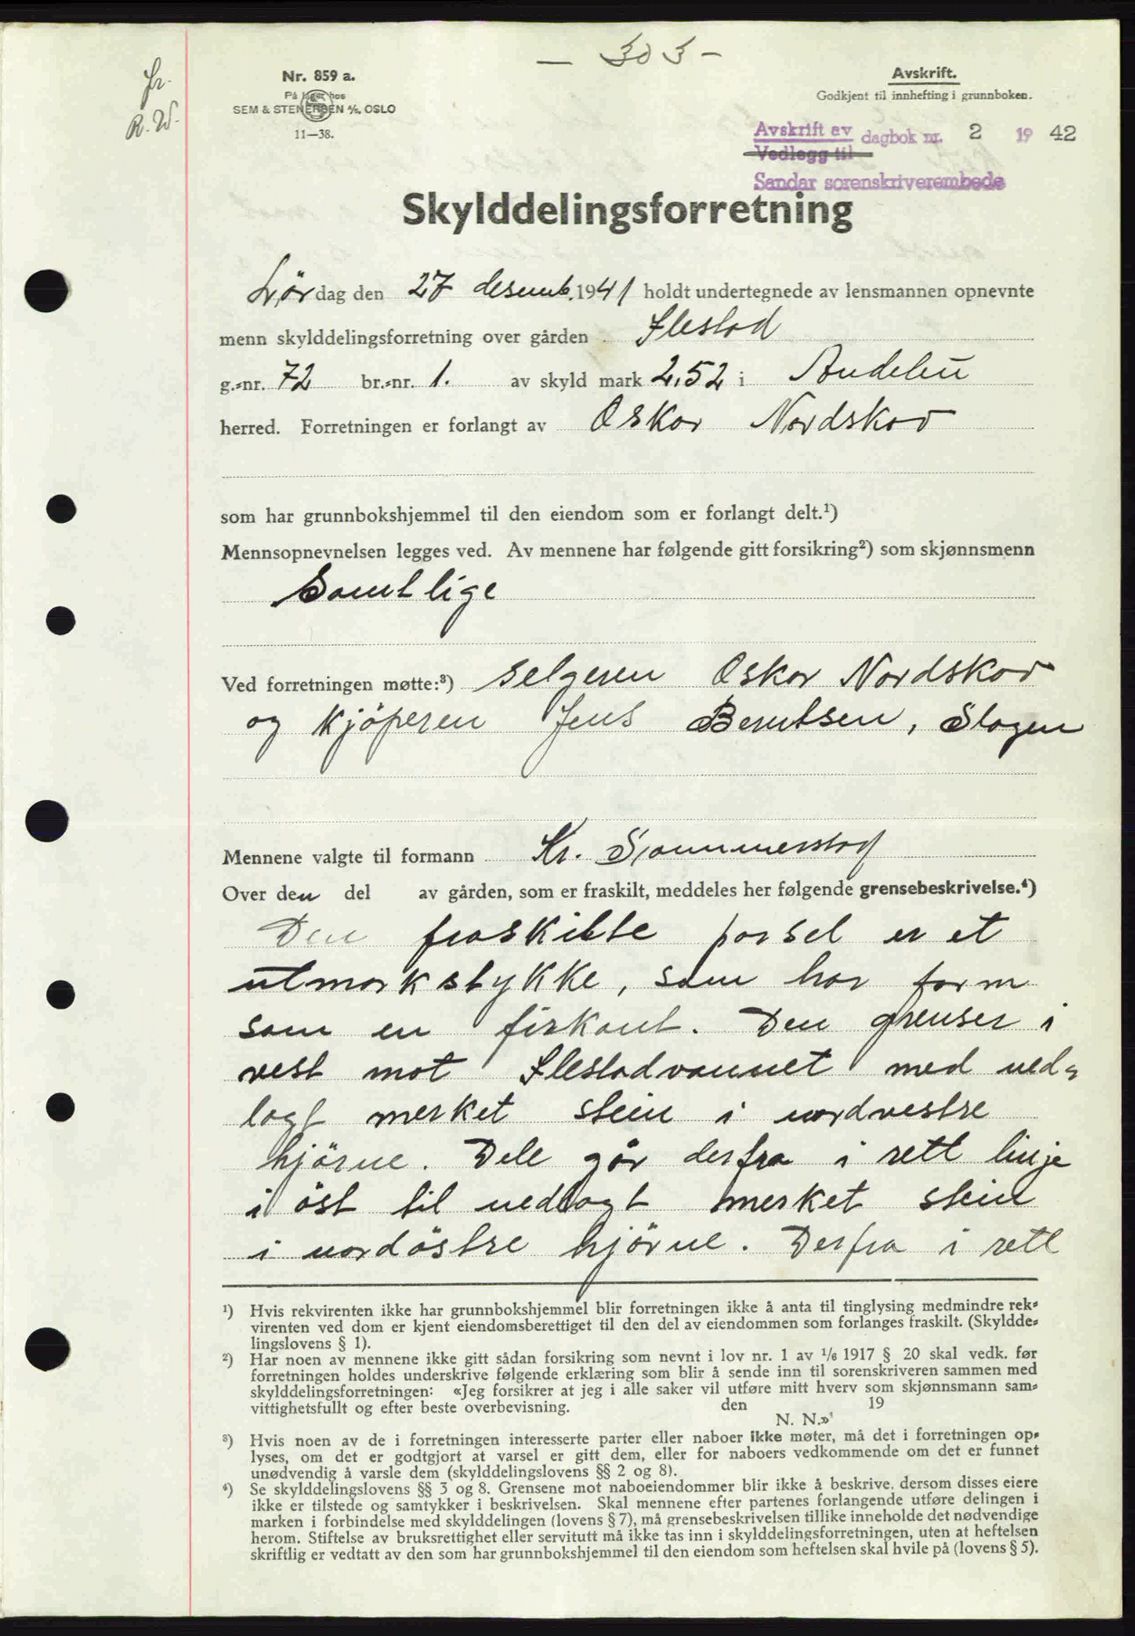 — 303 —
fr.
R.W.
Nr. 859 a.
På lager hos
SEM & STENERSEN A/S, OSLO
11—38.
Avskrift.
Godkjent til innhefting i grunnboken.
Avskrift av dagbok nr. 2 19 42
Vedlegg til
Sandar sorenskriverembede
Skylddelingsforretning
Lördag den 27 desemb. 1941 holdt undertegnede av lensmannen opnevnte
menn skylddelingsforretning over gården Ilestad
g.-nr. 72 br.-nr. 1. av skyld mark 2,52 i Andebu
herred. Forretningen er forlangt av Oskar Nordskov
som har grunnbokshjemmel til den eiendom som er forlangt delt.¹)
Mennsopnevnelsen legges ved. Av mennene har følgende gitt forsikring²) som skjønnsmenn
Samtlige
Ved forretningen møtte:³) selgeren Oskar Nordskov
og kjöperen Jens Berntsen, Slagen
Mennene valgte til formann Kr.
Over den del av gården, som er fraskilt, meddeles her følgende grensebeskrivelse.⁴)
Den fraskilte parsel er et
utmarkstykke, som har form
som en firkant. Den grenser i
vest mot Ilestadvannet med ned-
lagt merket stein i nordvestre
hjörne. Dele går derfra i rett linje
i öst til nedlagt merket stein
i nordöstre hjörne. Derfra i rett
¹) Hvis rekvirenten ikke har grunnbokshjemmel blir forretningen ikke å anta til tinglysing medmindre rek-
virenten ved dom er kjent eiendomsberettiget til den del av eiendommen som forlanges fraskilt. (Skyldde-
lingslovens § 1).
²) Har noen av mennene ikke gitt sådan forsikring som nevnt i lov nr. 1 av 1/6 1917 § 20 skal vedk. før
forretningen holdes underskrive følgende erklæring som blir å sende inn til sorenskriveren sammen med
skylddelingsforretningen: «Jeg forsikrer at jeg i alle saker vil utføre mitt hverv som skjønnsmann sam-
vittighetsfullt og efter beste overbevisning. den 19
N. N.»
³) Hvis noen av de i forretningen interesserte parter eller naboer ikke møter, må det i forretningen op-
lyses, om det er godtgjort at varsel er gitt dem, eller for naboers vedkommende om det er funnet
unødvendig å varsle dem (skylddelingslovens §§ 2 og 8).
⁴) Se skylddelingslovens §§ 3 og 8. Grensene mot naboeiendommer blir ikke å beskrive, dersom disses eiere
ikke er tilstede og samtykker i beskrivelsen. Skal mennene efter partenes forlangende utføre delingen i
marken i forbindelse med skylddelingen (lovens § 7), må grensebeskrivelsen tillike inneholde det nødvendige
herom. Stiftelse av bruksrettighet eller servitutt må ikke tas inn i skylddelingsforretningen, uten at heftelsen
skriftlig er vedtatt av den som har grunnbokshjemmel til den eiendom som heftelsen skal hvile på (lovens § 5).